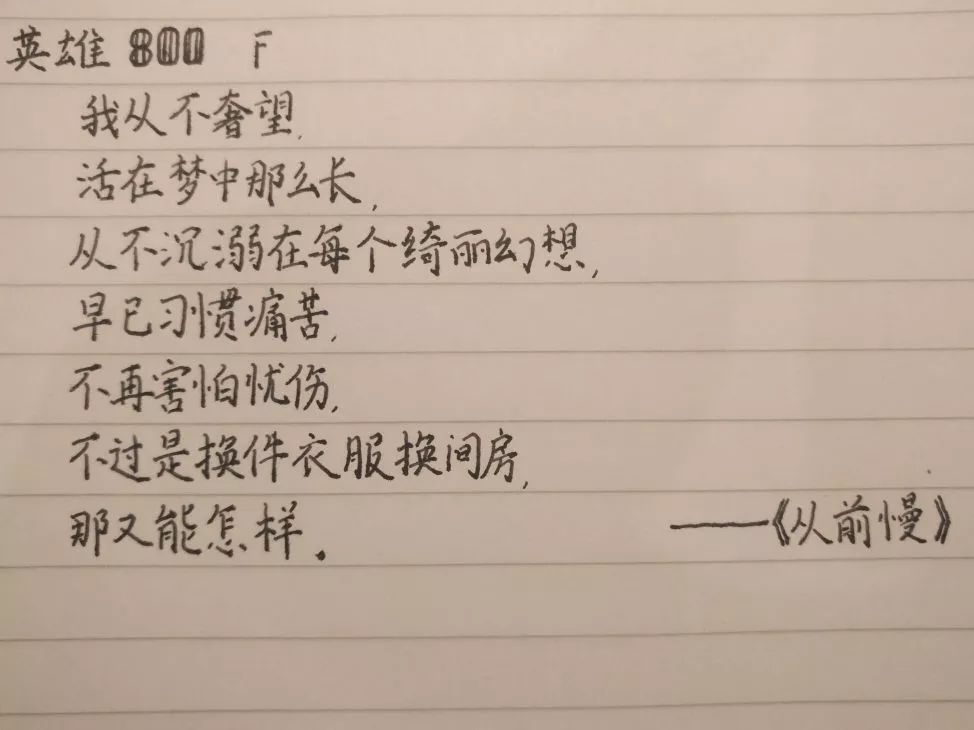 英雄 800 F
我从不奢望,
活在梦中那么长,
从不沉溺在每个绮丽幻想,
早已习惯痛苦,
不再害怕忧伤,
不过是换件衣服换间房,
那又能怎样.
——《从前慢》